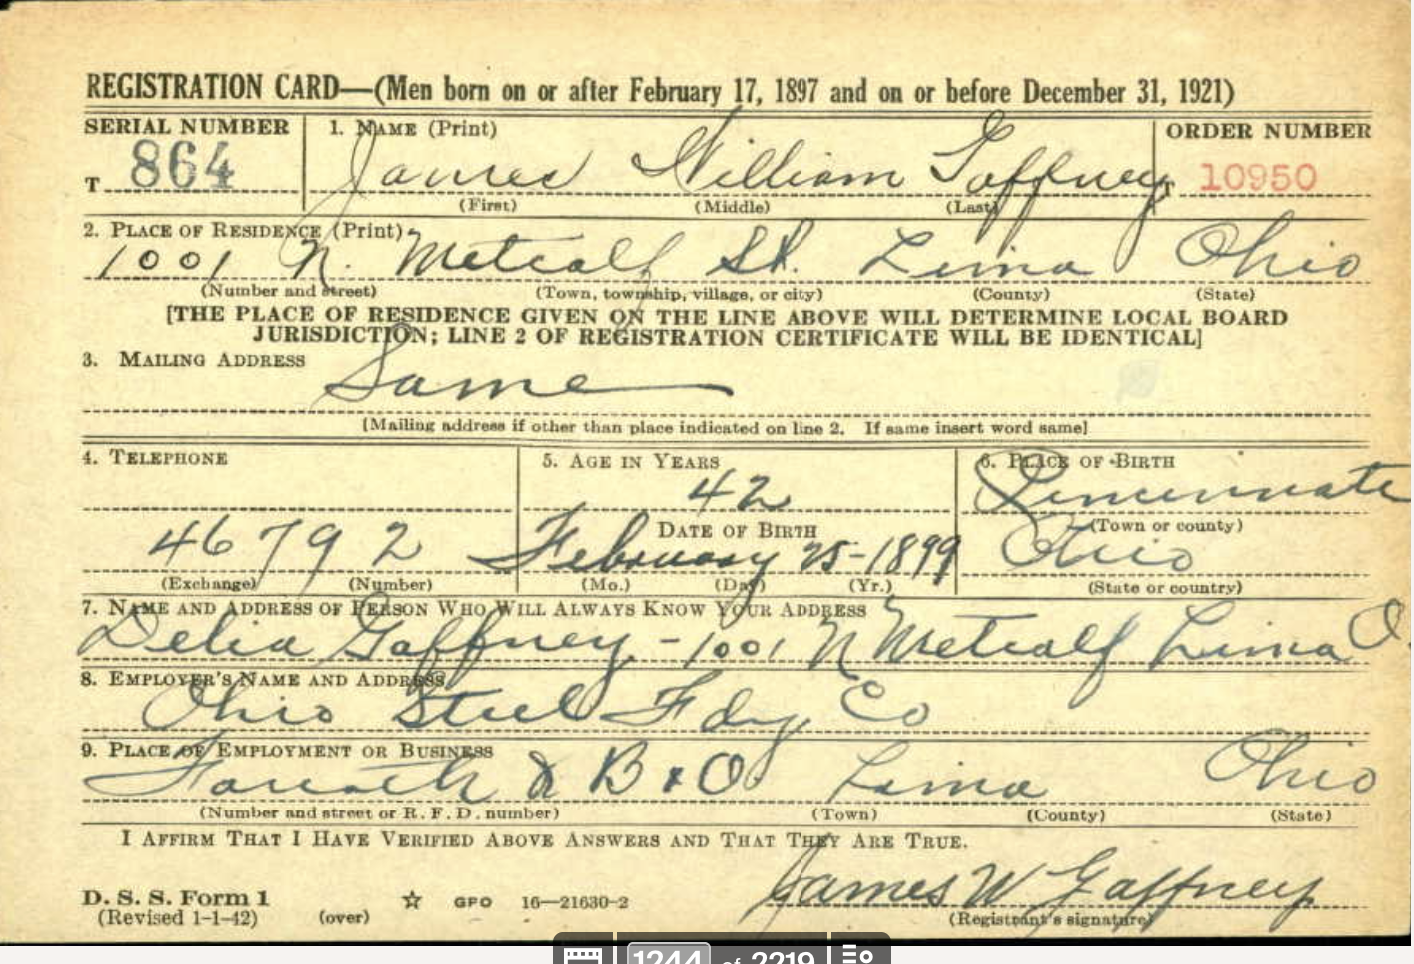 REGISTRATION CARD—(Men born on or after February 17, 1897 and on or before December 31, 1921)
SERIAL NUMBER 1. NAME (Print) ORDER NUMBER
T 864 James William Gaffney 10950
(First) (Middle) (Last)
2. PLACE OF RESIDENCE (Print)
1001 N. Metcalf St. Lima Ohio
(Number and street) (Town, township, village, or city) (County) (State)
[THE PLACE OF RESIDENCE GIVEN ON THE LINE ABOVE WILL DETERMINE LOCAL BOARD
JURISDICTION; LINE 2 OF REGISTRATION CERTIFICATE WILL BE IDENTICAL]
3. MAILING ADDRESS
Same
[Mailing address if other than place indicated on line 2. If same insert word same]
4. TELEPHONE 5. AGE IN YEARS 6. PLACE OF BIRTH
42 Cincinnati
DATE OF BIRTH (Town or county)
46792 February 25-1899 Ohio
(Exchange) (Number) (Mo.) (Day) (Yr.) (State or country)
7. NAME AND ADDRESS OF PERSON WHO WILL ALWAYS KNOW YOUR ADDRESS
Delia Gaffney - 1001 N Metcalf Lima O.
8. EMPLOYER'S NAME AND ADDRESS
Ohio Steel Fdy. Co
9. PLACE OF EMPLOYMENT OR BUSINESS
& B & O Lima Ohio
(Number and street or R. F. D. number) (Town) (County) (State)
I AFFIRM THAT I HAVE VERIFIED ABOVE ANSWERS AND THAT THEY ARE TRUE.
James W Gaffney
D. S. S. Form 1 ☆ GPO 16—21630-2
(Revised 1-1-42) (over) (Registrant's signature)
1244 of 2219